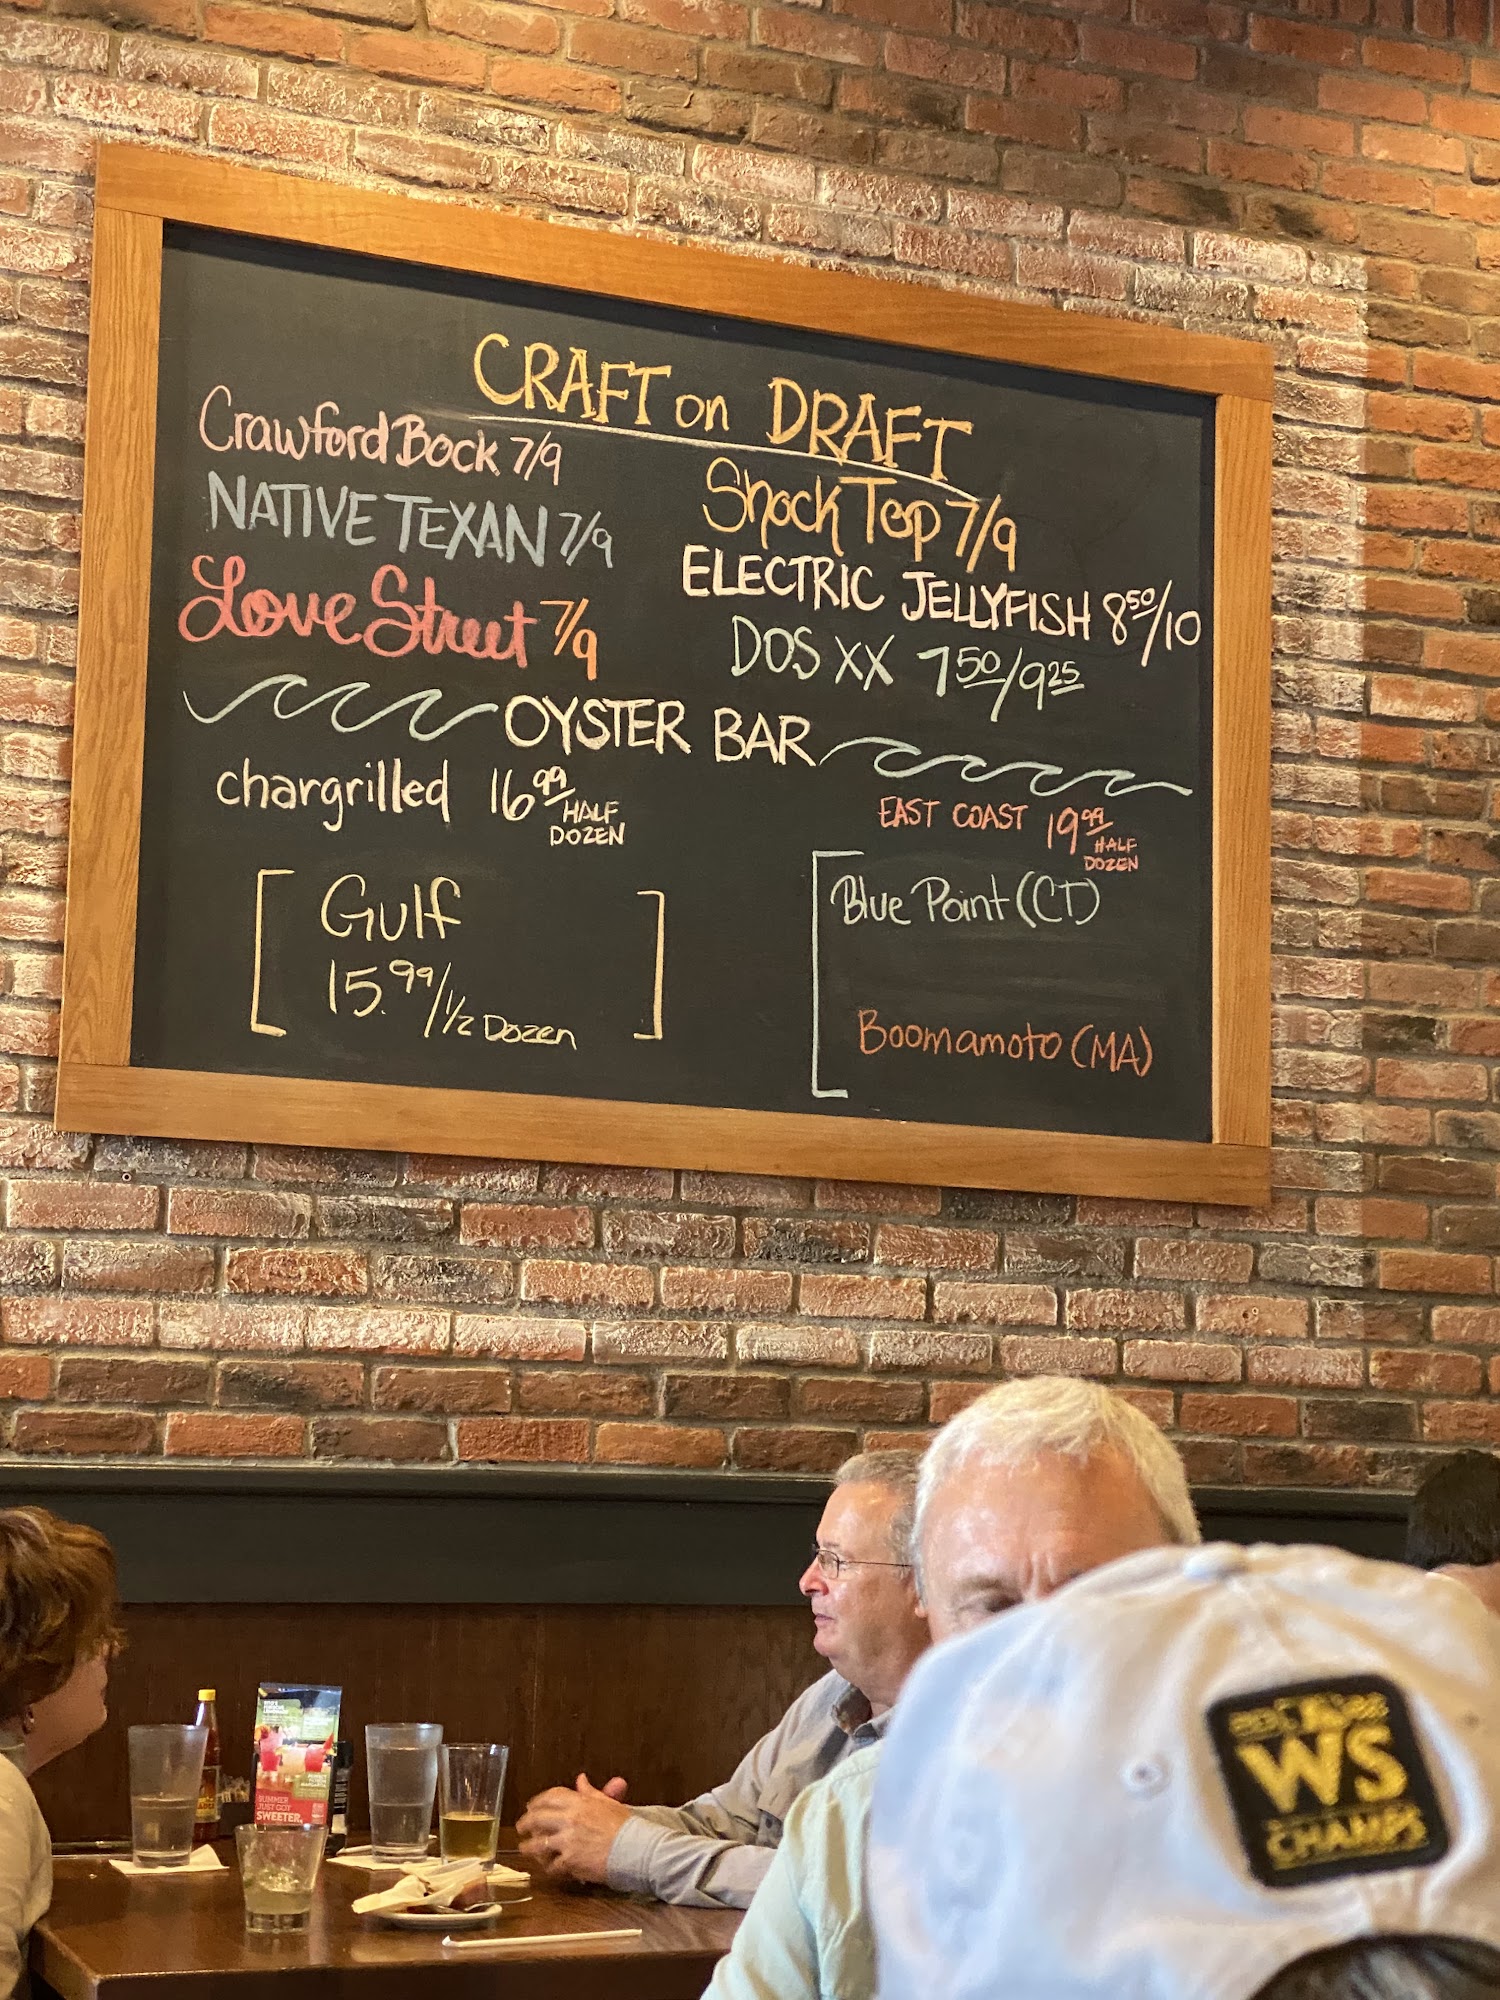 CRAFT on DRAFT
Crawford Bock 7/9
NATIVE TEXAN 7/9
Love Street 7/9
Shock Top 7/9
ELECTRIC JELLYFISH 850/10
DOS XX 750/925
OYSTER BAR
chargrilled 1699/HALF DOZEN
[Gulf
15.99/1/2 Dozen]
EAST COAST 1999 HALF DOZEN
[Blue Point (CT)
Boomamoto (MA)
SUMMER
JUST GOT
SWEETER.
WS
CHAMPS